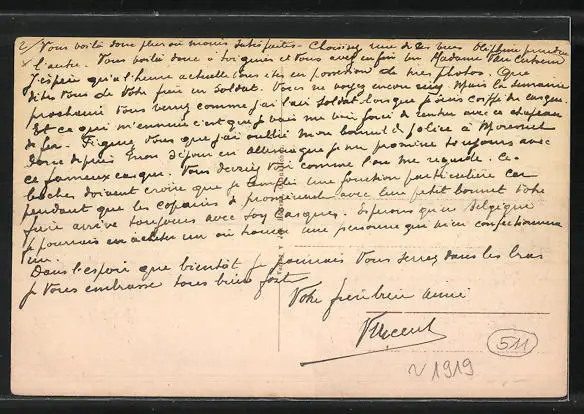 2/ Vous voilà donc plus ou moins satisfaites. Choisissez une de ces vues
l'autre. Vous voilà donc à Soignies et vous avez enfin vu Madame Van
J'espère qu'à l'heure actuelle vous êtes en possession de mes photos. Que
dites vous de votre frère en soldat. Vous ne voyez encore rien mais la semaine
prochaine vous verrez comme j'ai l'air soldat lorsque je suis coiffé du casque.
Et ce qui m'ennuie c'est que je vais me voir forcé de rentrer avec ce chapeau
de fer. Figurez vous que j'ai oublié mon bonnet de police à Moresnet
donc depuis mon séjour en Allemagne je me promène toujours avec
ce fameux casque. Vous devriez voir comme l'on me regarde. Ces
boches doivent croire que je remplis une fonction particulière car
pendant que les copains se promènent avec leur petit bonnet votre
frère arrive toujours avec son casque. Espérons qu'en Belgique
je pourrais en acheter un ou trouver une personne qui m'en confectionnera
un.
Dans l'espoir que bientôt je pourrais vous serrer dans les bras
je vous embrasse tous bien fort
Votre frère bien aimé
Vincent
511
N 1919